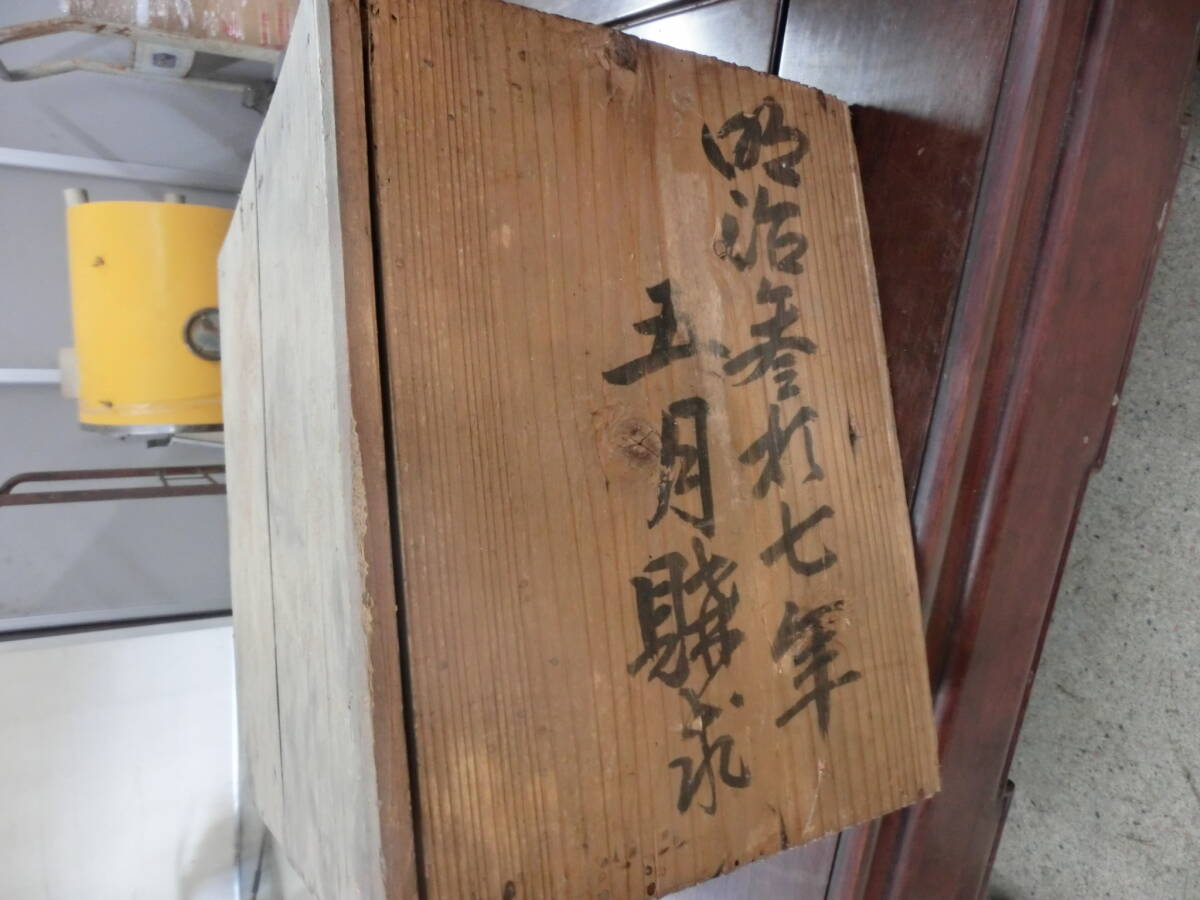 明治参拾七年
五月購求